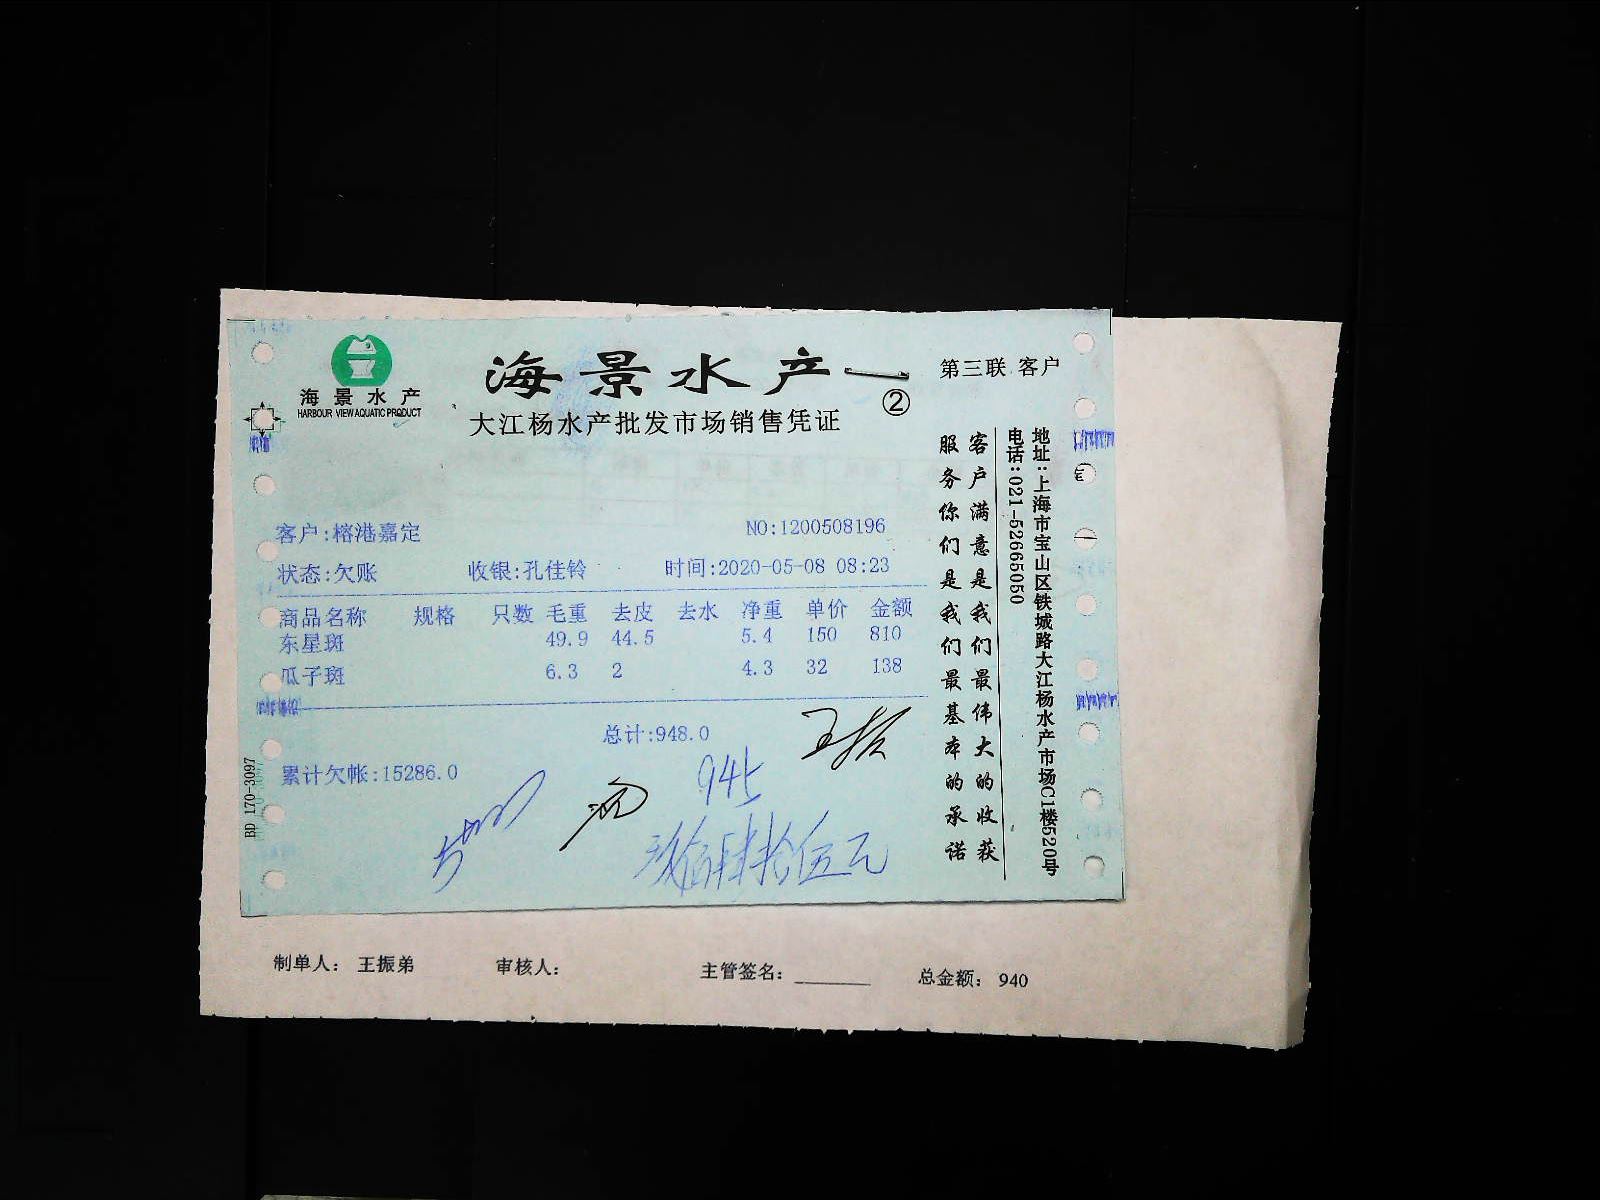 海景水产
HARBOUR VIEW AQUATIC PRODUCT
海景水产
第三联 客户
②
大江杨水产批发市场销售凭证
客户:榕港嘉定
NO:1200508196
状态:欠账 收银:孔佳铃 时间:2020-05-08 08:23
商品名称 规格 只数 毛重 去皮 去水 净重 单价 金额
东星斑 49.9 44.5 5.4 150 810
瓜子斑 6.3 2 4.3 32 138
总计:948.0
累计欠帐:15286.0
王振
945
玖佰肆拾伍元
客户满意是我们最伟大的收获
服务你们是我们最基本的承诺
地址:上海市宝山区铁城路大江杨水产市场C1楼520号
电话:021-52665050
BD 170-3097
制单人: 王振弟 审核人: 主管签名: 总金额: 940